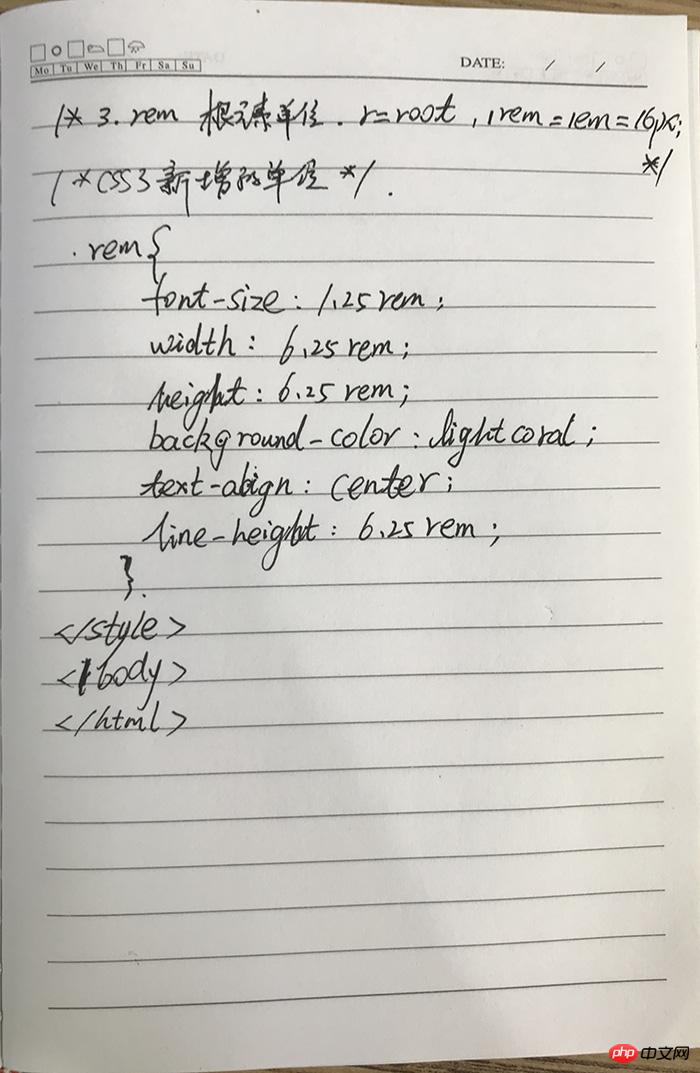 Mo Tu We Th Fr Sa Su
DATE: / /
/* 3. rem 根元素单位. r=root, 1rem=1em=16px;
*/
/*CSS3新增的单位 */.
.rem{
font-size: 1.25rem;
width: 6.25rem;
height: 6.25rem;
background-color: lightcoral;
text-align: center;
line-height: 6.25rem;
}.
</style>
</body>
</html>
php 中文网